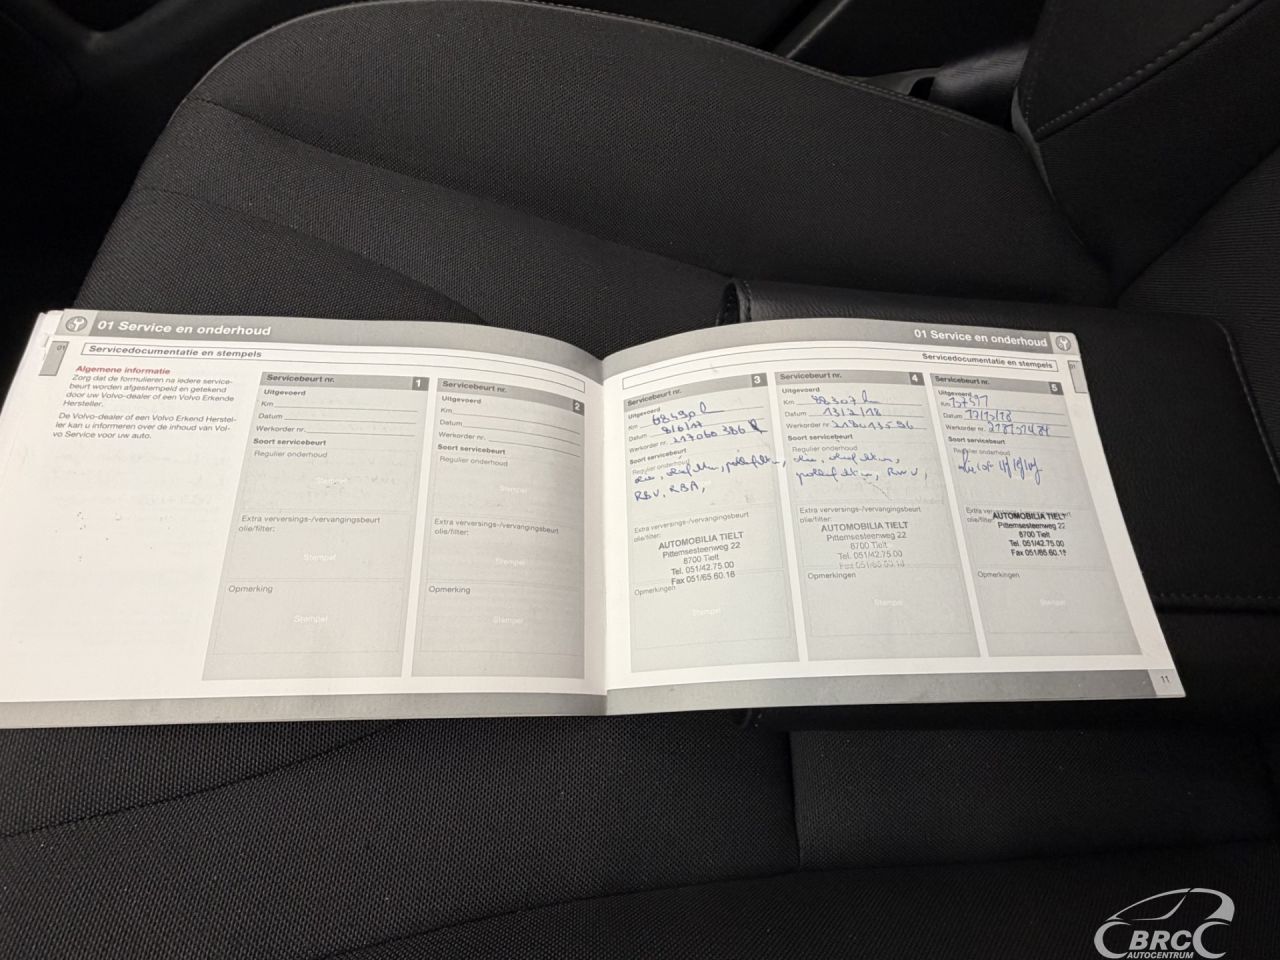 01 Service en onderhoud
01
Servicedocumentatie en stempels
Algemene informatie
Zorg dat de formulieren na iedere service-
beurt worden afgestempeld en getekend
door uw Volvo-dealer of een Volvo Erkende
Hersteller.
De Volvo-dealer of een Volvo Erkend Herstel-
ler kan u informeren over de inhoud van Vol-
vo Service voor uw auto.
Servicebeurt nr. 1
Uitgevoerd
Km
Datum
Werkorder nr.
Soort servicebeurt
Regulier onderhoud
Stempel
Extra verversings-/vervangingsbeurt
olie/filter:
Stempel
Opmerking
Stempel
Servicebeurt nr. 2
Uitgevoerd
Km
Datum
Werkorder nr.
Soort servicebeurt
Regulier onderhoud
Stempel
Extra verversings-/vervangingsbeurt
olie/filter:
Stempel
Opmerking
Stempel
01 Service en onderhoud
Servicedocumentatie en stempels
01
Servicebeurt nr. 3
Uitgevoerd
Km 68490
Datum 8/6/17
Werkorder nr. 217060386
Soort servicebeurt
Regulier onderhoud
RBV, RBA,
Extra verversings-/vervangingsbeurt
olie/filter:
AUTOMOBILIA TIELT
Pittemsesteenweg 22
8700 Tielt
Tel. 051/42.75.00
Fax 051/65.60.16
Opmerkingen
Stempel
Servicebeurt nr. 4
Uitgevoerd
Km 88307
Datum 13/2/18
Werkorder nr.
Soort servicebeurt
Regulier onderhoud
Extra verversings-/vervangingsbeurt
olie/filter:
AUTOMOBILIA TIELT
Pittemsesteenweg 22
8700 Tielt
Tel. 051/42.75.00
Fax 051/65.60.16
Opmerkingen
Stempel
Servicebeurt nr. 5
Uitgevoerd
Km
Datum 17/12/18
Werkorder nr.
Soort servicebeurt
Regulier onderhoud
olie/filter:
AUTOMOBILIA TIELT
Pittemsesteenweg 22
8700 Tielt
Tel. 051/42.75.00
Fax 051/65.60.16
Opmerkingen
Stempel
11
BRC
AUTOCENTRUM